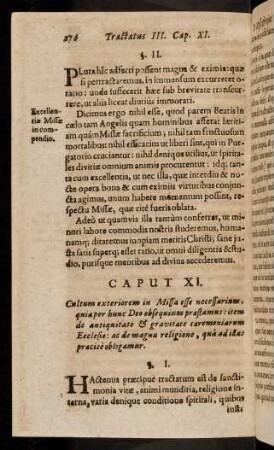 276 Tractatus III. Cap. XI.
§. II.
PLura hîc adferri possent magna & eximia: quæ
si pertractaremus, in immensum excurreret o-
ratio: unde suffecerit hæc sub brevitate transcur-
rere, ut alias liceat diutius immorati.
Excellen-
tiæ Missæ
in com-
pendio.
Dicimus ergo nihil esse, quod parem Beatis in
cœlo tam Angelis quam hominibus afferat lætiti-
am quàm Missæ sacrificium; nihil tam fructuosum
mortalibus: nihil efficatius ut liberi sint, qui in Pur-
gatorio cruciantur: nihil denique utilius, ut spirita-
les divitiæ omnium animis procurentur: idque tan-
tacum excellentia, ut nec illa, quæ interdiu & no-
cte opera bona & cum eximiis virtutibus conjun-
cta agimus, unum habere momentum possint, re-
spectu Missæ, quæ ritè fuerit oblata.
Adeò ut quamvis illa tantùm conferret, ut mi-
nori labore commodis nostris studeremus, humana-
mque ditaremus inopiam meritis Christi; sane ju-
sta satis superque esset ratio, ut omni diligentia & stu-
dio, purisque mentibus ad divina accederemus.
CAPUT XI.
Cultum exteriorem in Missa esse necessarium,
quia per hunc Deo obsequium præstamus: item
de antiquitate & gravitate cæremoniarum
Ecclesiæ: ac de magna religione, quâ ad istæ
practicè obligamur.
§. I.
HActenus præcipuè tractatum est de sancti-
monia vitæ, animi munditia, religione in-
terna, variâ denique conditione spiritali, quibus
insti-